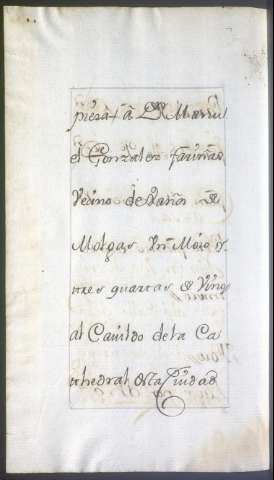 á Dn Manu
el Gonzalez fariñas
Vecino de Baños de
Molgas, Vn Moio y
tres quartas de Vino
al Cavildo de la Ca
thedral Ciudad